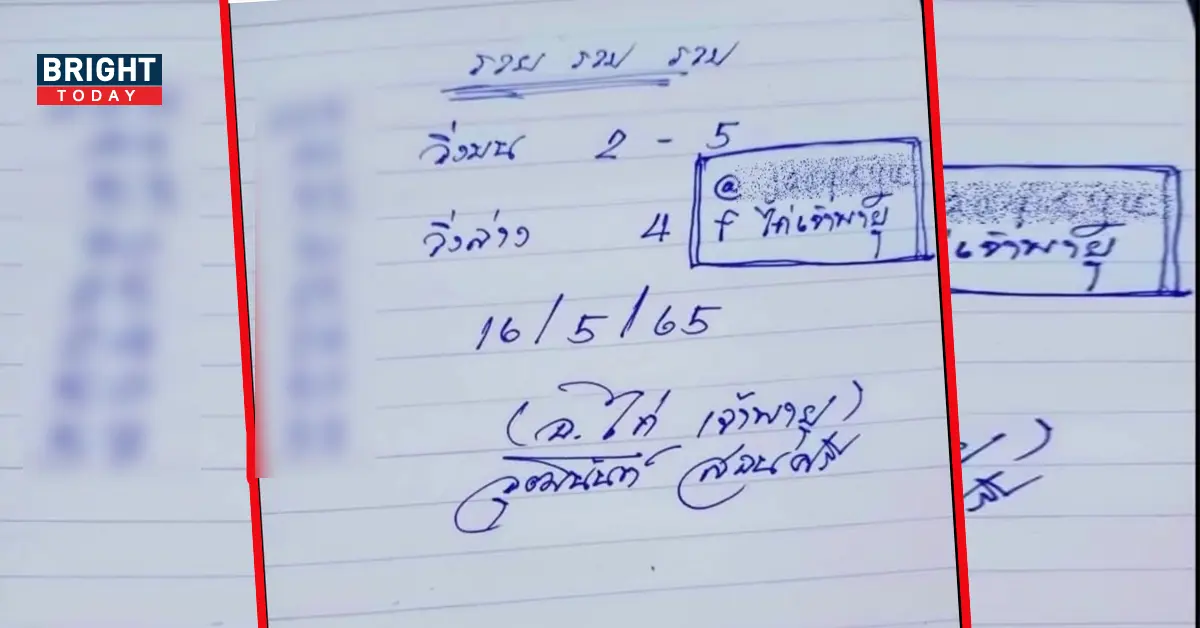 BRIGHT
TODAY
รวย รวย รวย
วิ่งบน 2 - 5
@
f ไก่เจ้าพายุ
วิ่งล่าง 4
16/5/65
(อ. ไก่ เจ้าพายุ)
เจ้าพายุ